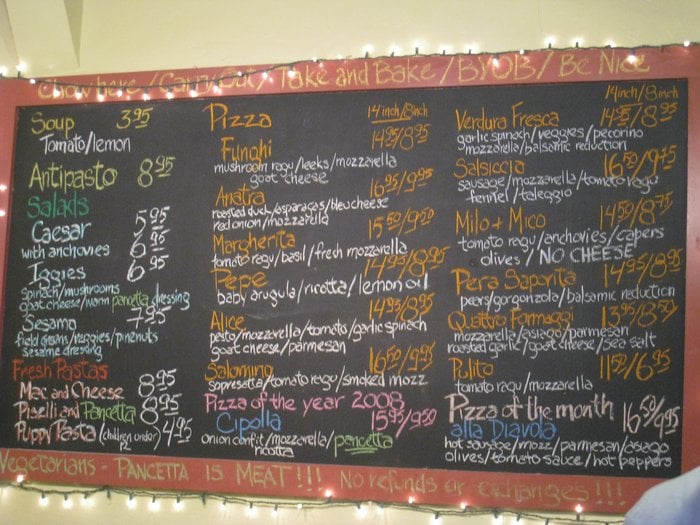 Chow here / Carry Out / Take and Bake / BYOB / Be Nice
Soup 3.95
Tomato/lemon
Antipasto 8.95
Salads
Caesar 5.95
with anchovies 6.95
Iggies 6.95
spinach/mushrooms
goat cheese/warm pancetta dressing
Sesamo 7.95
field greens/veggies/pinenuts
sesame dressing
Fresh Pastas
Mac and Cheese 8.95
Piselli and Pancetta 8.95
Puppy Pasta (children under 12) 4.95
Pizza 14inch/8inch
Funghi 14.95/8.95
mushroom ragu/leeks/mozzarella
goat cheese
Anatra 16.95/9.95
roasted duck/asparagas/bleu cheese
red onion/mozzarella
Margherita 15.50/9.50
tomato ragu/basil/fresh mozzarella
Pepe 14.95/8.95
baby arugula/ricotta/lemon oil
Alice 14.95/8.95
pesto/mozzarella/tomato/garlic spinach
goat cheese/parmesan
Salamino 16.50/9.95
sopresetta/tomato ragu/smoked mozz
Pizza of the year 2008
Cipolla 15.95/9.50
onion confit/mozzarella/pancetta
ricotta
14inch/8inch
Verdura Fresca 14.95/8.95
garlic spinach/veggies/pecorino
mozzarella/balsamic reduction
Salsiccia 16.50/9.75
sausage/mozzarella/tomato ragu
fennel/taleggio
Milo + Mico 14.50/8.75
tomato ragu/anchovies/capers
olives/NO CHEESE
Pera Saporita 14.95/8.95
pears/gorgonzola/balsamic reduction
Quattro Formaggi 13.95/8.50
mozzarella/asiago/parmesan
roasted garlic/goat cheese/sea salt
Pulito 11.50/6.95
tomato ragu/mozzarella
Pizza of the month 16.50/9.95
alla Diavola
hot sausage/mozz/parmesan/asiago
olives/tomato sauce/hot peppers
Vegetarians - PANCETTA IS MEAT!!! No refunds or exchanges!!!